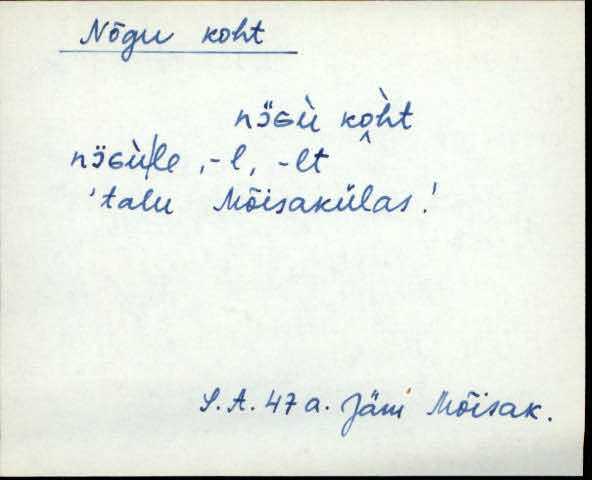 Nõgu koht
nɔ̈ɢù kòht
nɔ̈ɢù|le, -l, -lt
'talu Mõisakülas!
S.A. 47 a. Jäni Mõisak.